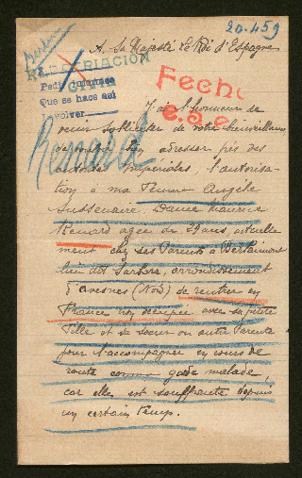 20.459
A Sa Majesté Le Roi d'Espagne
REPATRIACION
Fecho
Pedir informes
Que se haga así
volver
e.s.e
Renard
J'ai l'honneur de
venir solliciter de votre bienveillance
adresser près des
autorités impériales l'autorisa-
tion à ma femme Angèle
Dame Maurice
Renard agée de ans, actuelle-
ment chez ses Parents à Berlaimont
lieu dit Sarbara, arrondissement
d'avesnes (Nord) de rentrer en
France non occupée avec sa petite
Fille et sa sœur ou autre Parente
pour l'accompagner en cours de
route comme garde malade,
car elle est souffrante depuis
un certain temps.